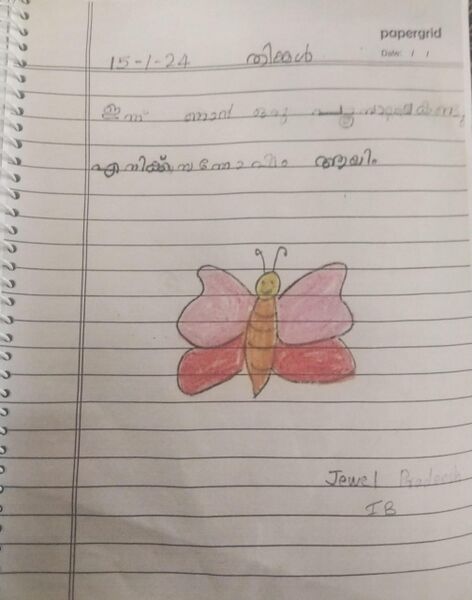 papergrid
Date: / /
15-1-24 തിങ്കൾ
ഇന്ന് ഞാൻ ഒരു
എനിക്ക് സന്തോഷം ആയി.
Jewel Pradeesh
I B